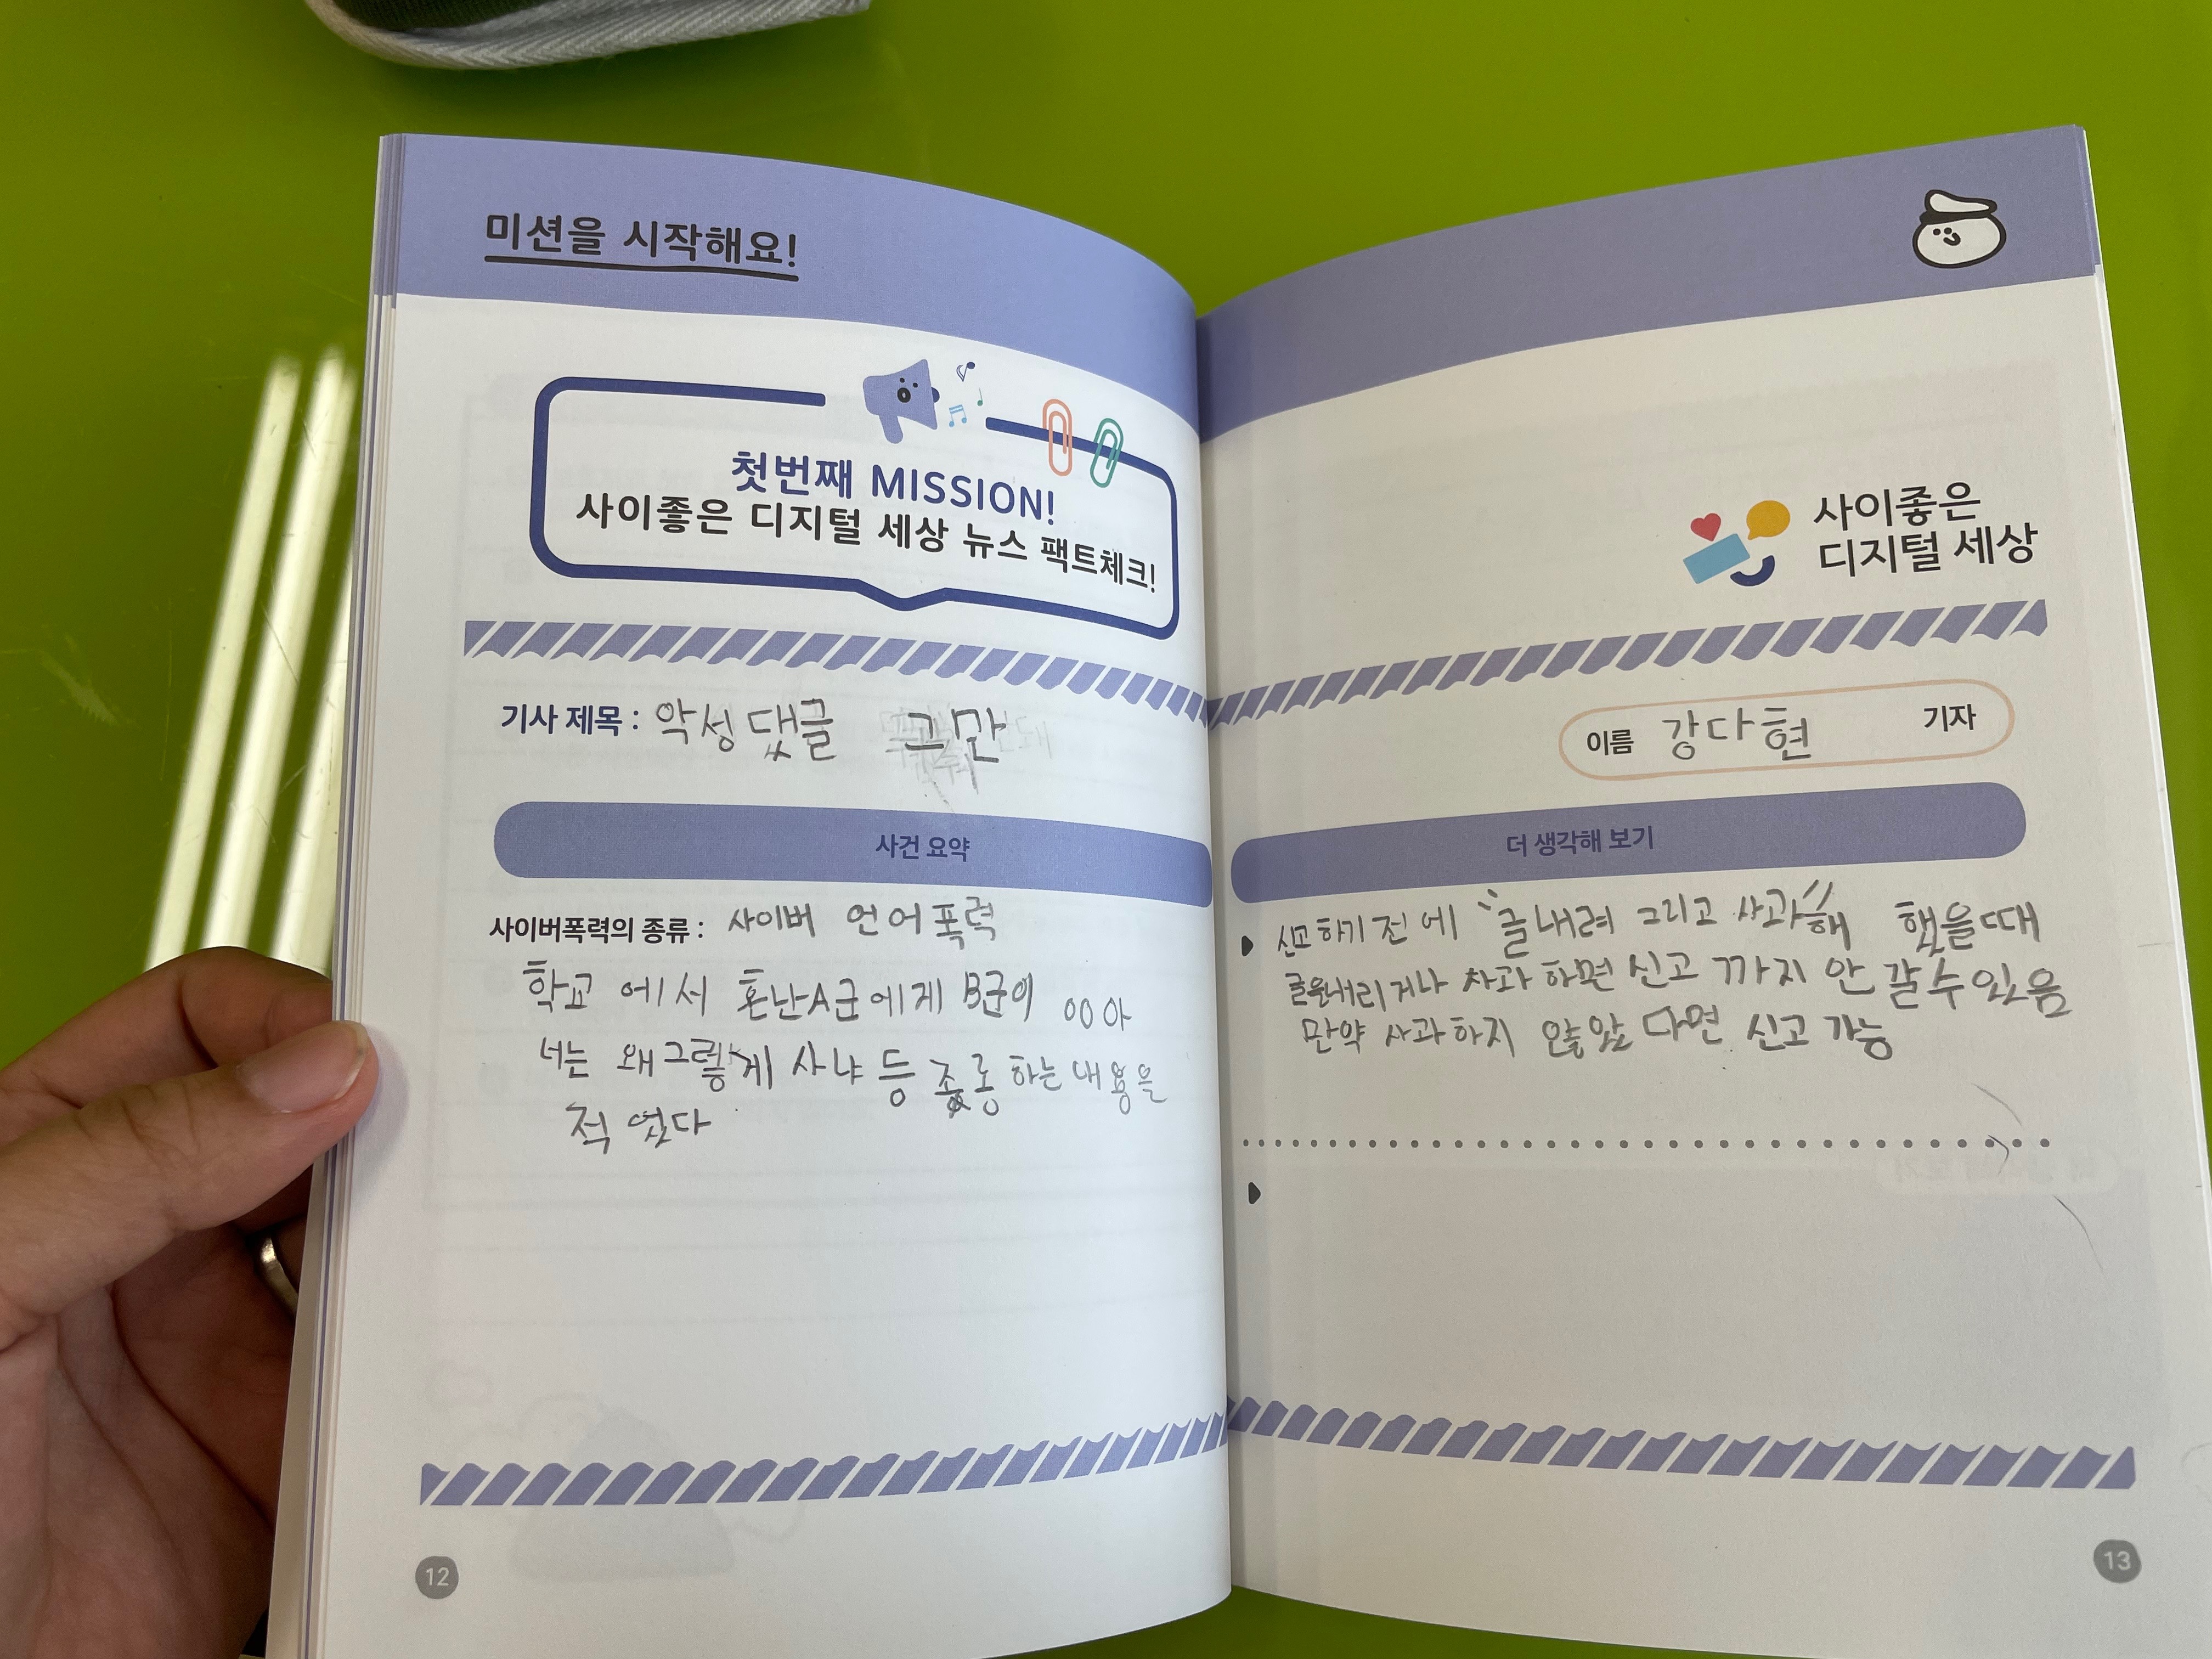 미션을 시작해요!
첫번째 MISSION!
사이좋은 디지털 세상 뉴스 팩트체크!
기사 제목 : 악성 댓글 그만
사건 요약
사이버폭력의 종류 : 사이버 언어폭력
학교 에서 혼난A군에게 B군이 ㅇㅇ아
너는 왜그렇게 사냐 등 조롱 하는 내용을
적 었다
12
사이좋은
디지털 세상
이름 강다현 기자
더 생각해 보기
신고하기 전 에 "글내려 그리고 사과해" 했을때
글을내리거나 사과 하면 신고 까지 안 갈수있음
만약 사과하지 않았다면 신고 가능
13